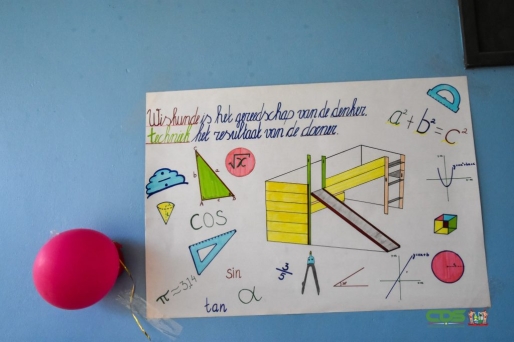 Wiskunde is het gereedschap van de denker.
techniek het resultaat van de doener.
a² + b² = c²
√x
cos
π ≈ 3,14
sin
tan
α
COS